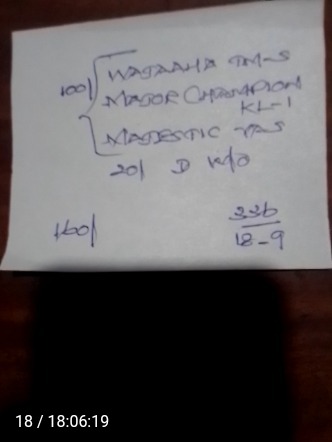 100/ WAJAAHA TM-S
MAJOR CHAMPION
KL-1
MAJESTIC VAS
20/ D K/O
160/
336
18-9
18 / 18:06:19